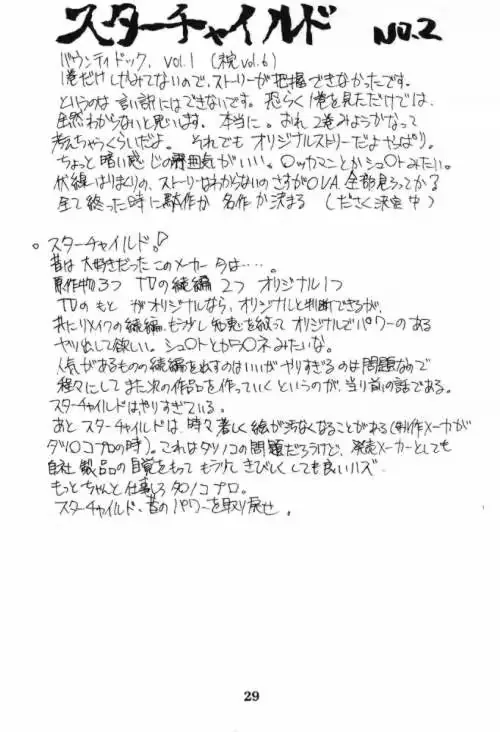 スターチャイルド NO.2
バウンティドック, vol.1
1巻だけしかみてないので、ストーリーが把握できなかったです。
というのは言い訳にはできないです。恐らく1巻を見ただけでは、
全然わからないと思います。本当に。おれ2巻みようかなって
考えちゃくらいだよ。それでもオリジナルストリーだよやっぱり。
ちょっと暗い感じの雰囲気がいい。ロッ○マンとかシュ○トみたい。
伏線はりまくりの、ストーリーはわからないの さすがOVA 全部見ろってか?
全て終った時に駄作か 名作か決まる (ださく決定中)
。スターチャイルド。
昔は大好きだったこのメーカー 今は……。
原作物3つ TVの続編 2つ オリジナル1つ
TVのもと がオリジナルなら、オリジナルと判断できるが、
の続編、もう少し知恵を絞って オリジナルでパワーのある
ヤツ出して欲しい。シュ○トとから○ネみたいな。
人気があるものの続編を出すのはいいがやりすぎるのは問題なので
程々にしてまた次の作品を作っていくというのが、当り前の話である。
スターチャイルドはやりすぎている。
あとスターチャイルドは、時々著しく絵が汚なくなることがある(制作メーカが
タツ○コプロの時)。これはタツノコの問題だろうけど、発売メーカーとしても
自社製品の自覚をもって もう少しきびしくしても良いハズ
もっとちゃんと仕事しろ タ○ノコプロ。
スターチャイルド、昔のパワーを取り戻せ。
29